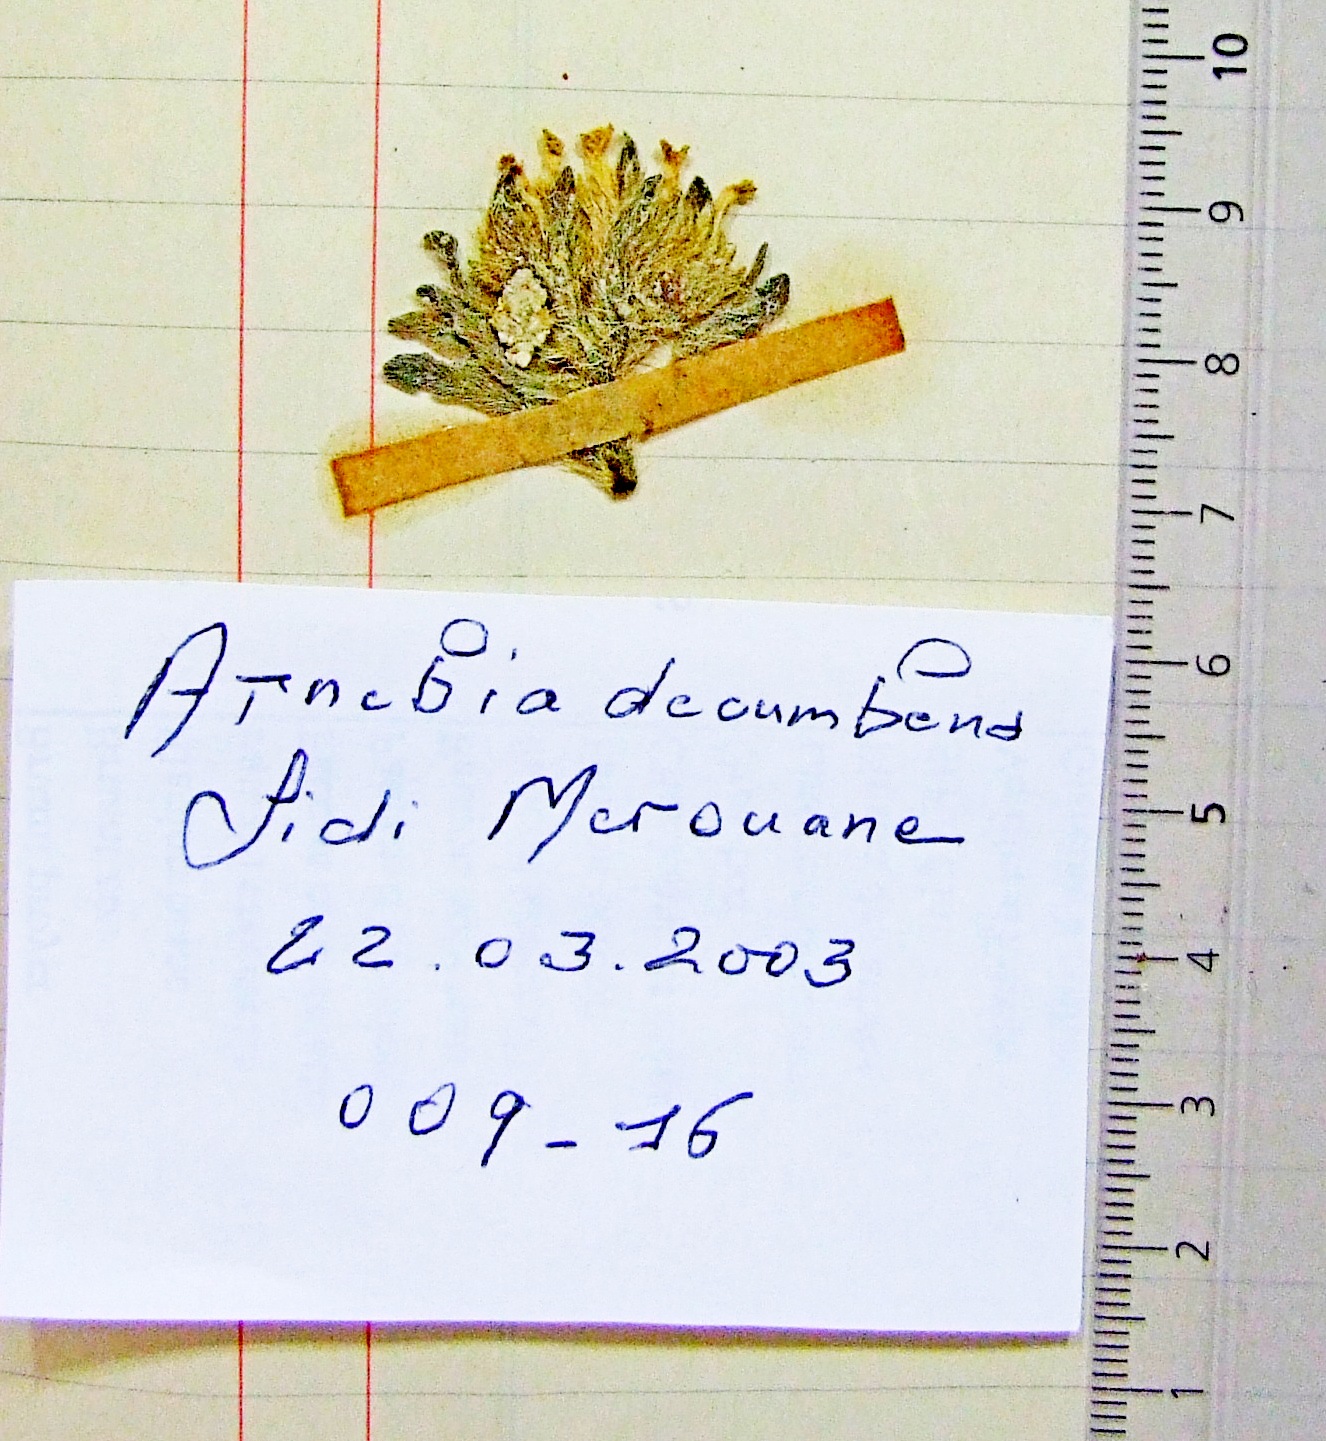 Arnebia decumbens
Sidi Merouane
22.03.2003
009-16
10
9
8
7
6
5
4
3
2
1